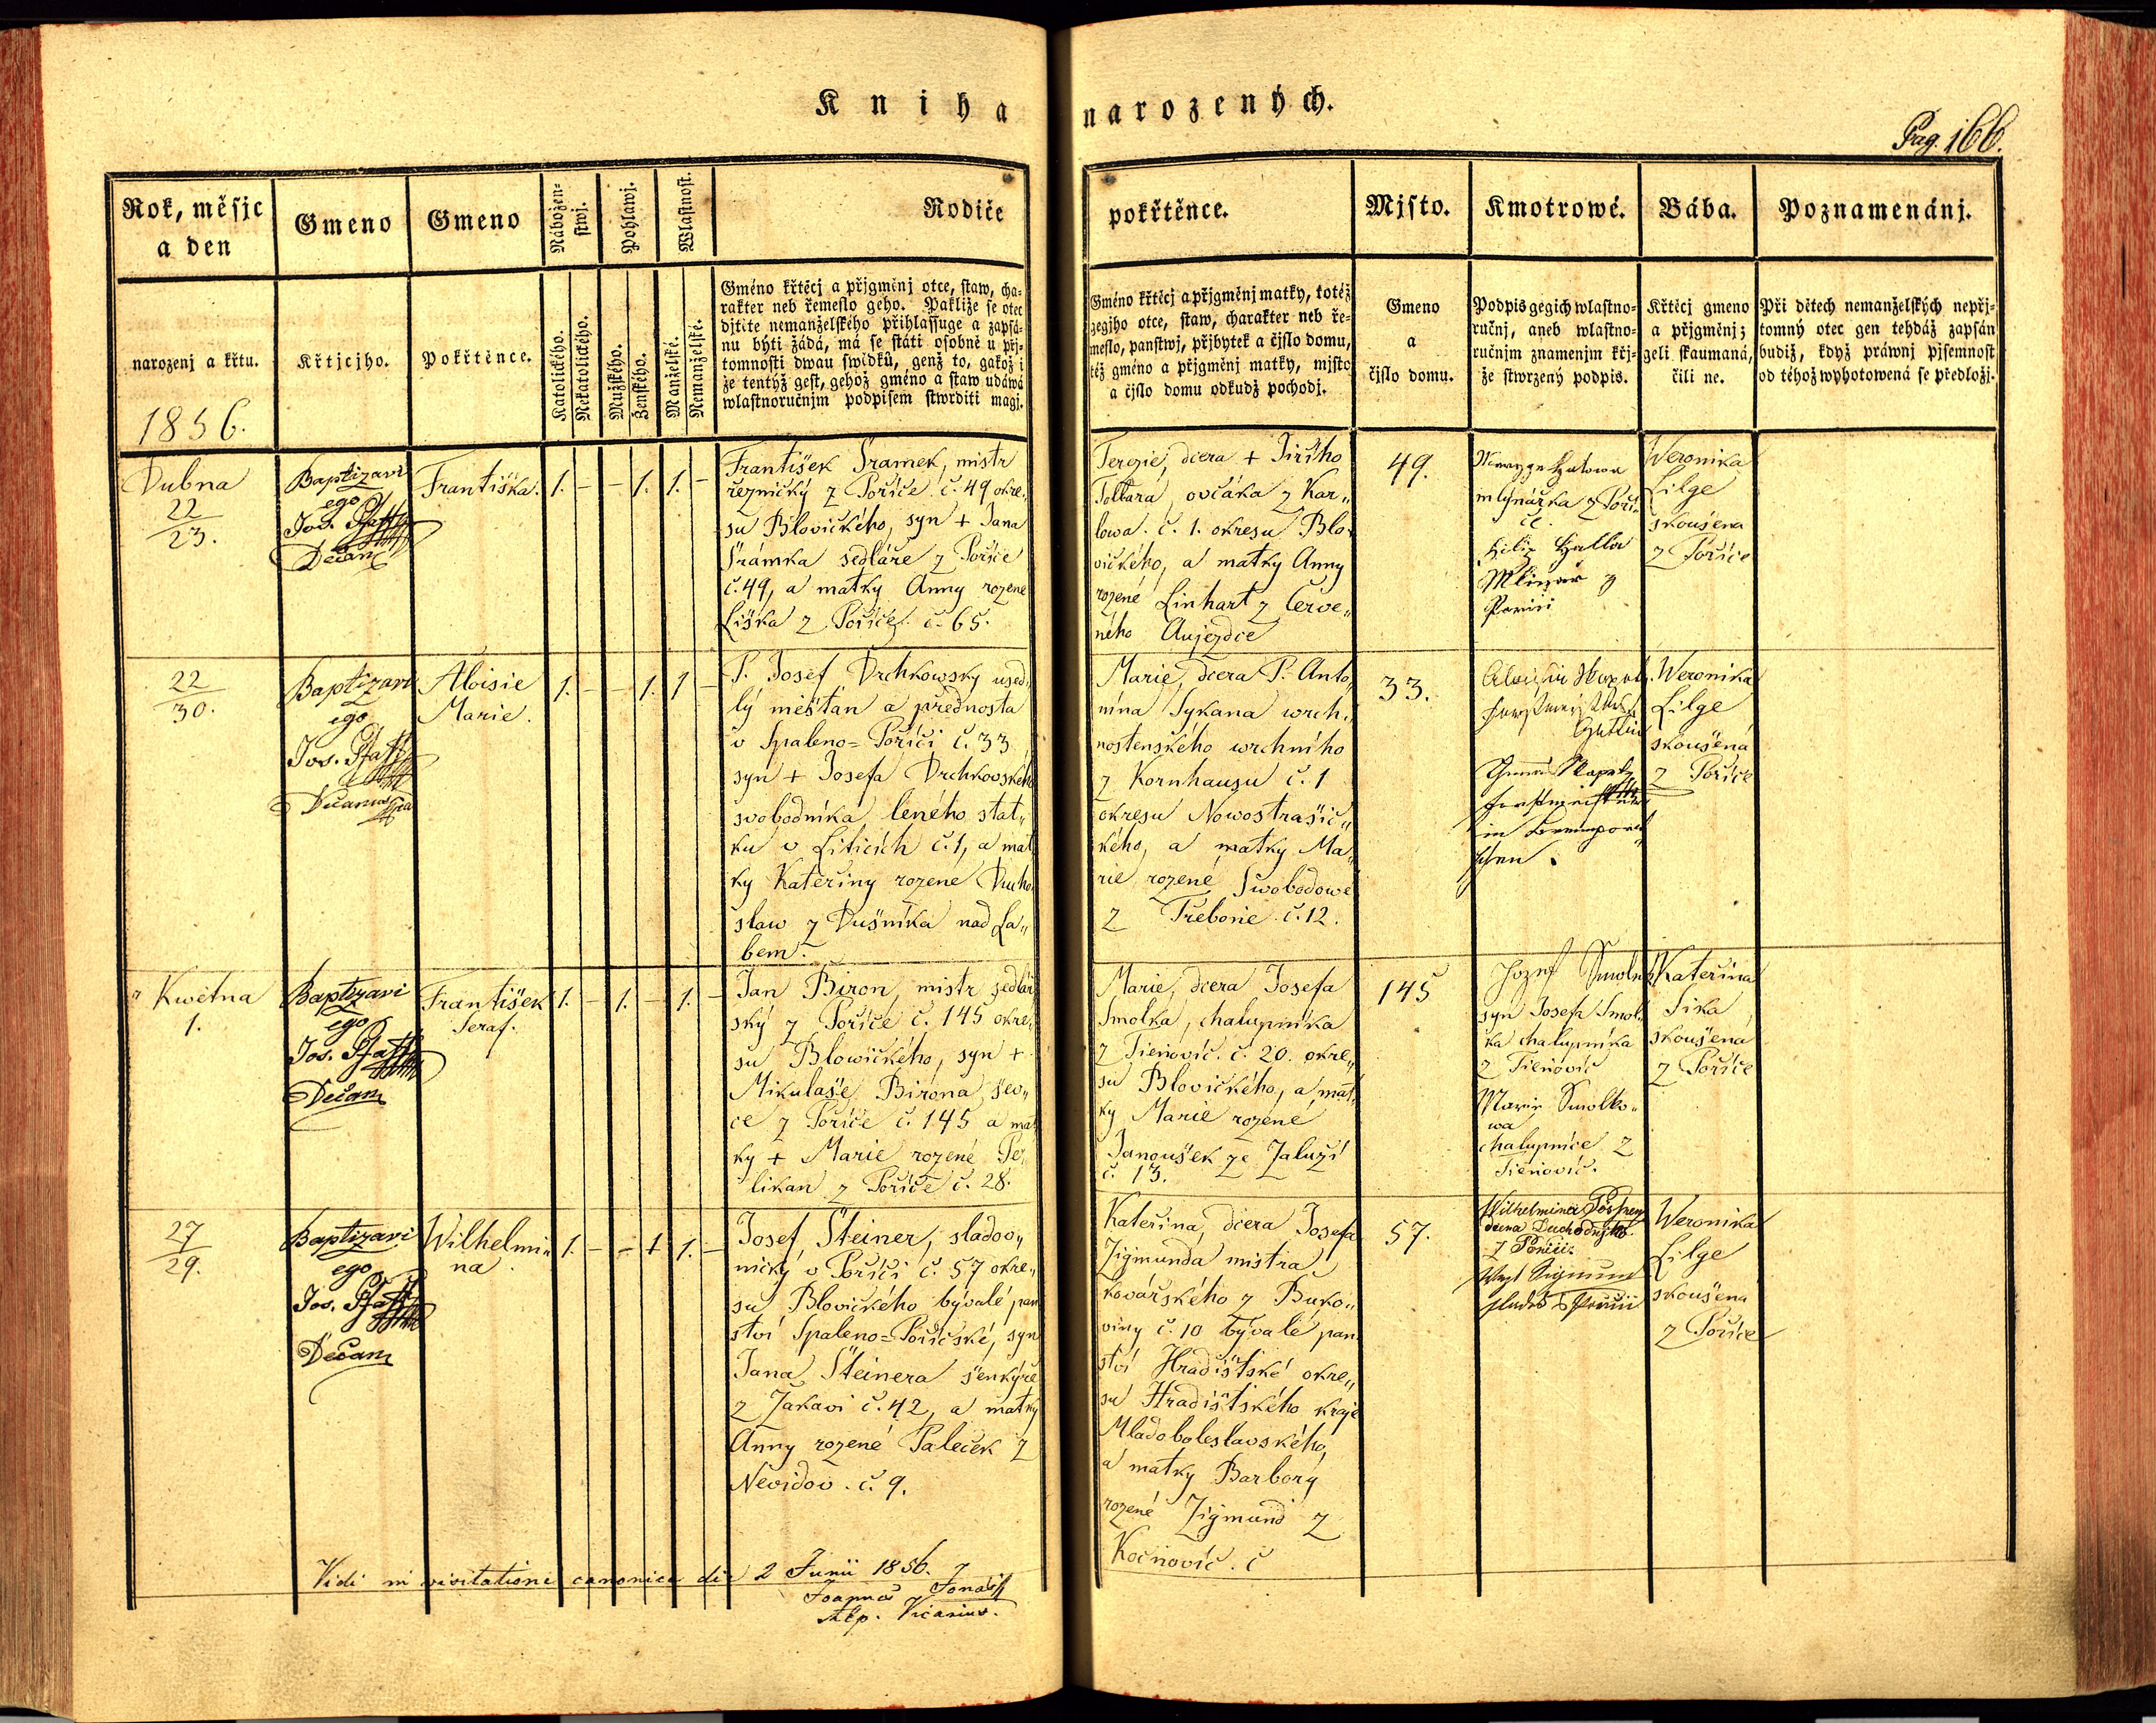 Kniha narozených.
Pag. 166.
Rok, měsjc
a den
narozenj a křtu.
1856.
Gmeno
Křtjcjho.
Gmeno
Pokřtěnce.
Nábožen-
stwj.
Katolického.
Nekatolického.
Pohlawj.
Mužského.
Ženského.
Wlastnost.
Manželské.
Nemanželské.
Rodiče
Gméno křtěcj a přjgměnj otce, staw, cha-
rakter neb řemeslo geho. Pakliže se otec
djtěte nemanželského přihlassuge a zapsá-
nu býti žádá, má se státi osobně u přj-
tomnosti dwau swědků, genž to, gakož i
že tentýž gest, gehož gméno a staw udáwá
wlastnoručnjm podpisem stwrditi magj.
pokřtěnce.
Gméno křtěcj a přjgměnj matky, totéž
gegjho otce, staw, charakter neb ře-
meslo, panstwj, přjbytek a čjslo domu,
též gméno a přjgměnj matky, mjsto
a čjslo domu odkudž pochodj.
Mjsto.
Gmeno
a
čjslo domu.
Kmotrowé.
Podpis gegich wlastno-
ručnj, aneb wlastno-
ručnjm znamenjm křj-
že stwrzený podpis.
Bába.
Křtěcj gmeno
a přjgměnj;
geli skaumaná,
čili ne.
Poznamenánj.
Při dětech nemanželských nepřj-
tomný otec gen tehdáž zapsán
budiž, když práwnj pjsemnost
od téhož wyhotowená se předložj.
Dubna
22
23.
Baptizavi
ego
Jos. Pfaff
Děčan
Františka.
1. – – 1. 1. –
František Šramek, mistr
řeznický z Pořiče č. 49 okre„
su Blovického, syn + Jana
Šrámka sedláře z Pořiče
č. 49, a matky Anny rozené
Liška z Pořiče č. 65.
Terezie, dcera + Jiřího
ovčáka z Kar„
lowa č. 1. okresu Blo„
vického, a matky Anny
rozené Linhart z Červe„
ného Aujezdce
49.
mlynářka z Poři„
če.
Mlinář z
Weronika
Lilge
skoušena
z Pořiče
22
30.
Baptizavi
ego
Jos. Pfaff
Aloisie
Marie.
1. – – 1. 1 –
P. Josef Drchkowský used„
lý měšťan a přednosta
v Spaleno=Pořiči č. 33
syn + Josefa Drchkovského
svobodníka leného stat„
ku v Liticích č. 1, a mat
ky Kateřiny rozené
slaw z Dušníka nad La„
bem.
Marie, dcera P. Anto„
nína Sykana wrch„
nostenského wrchního
z Kornhausu č. 1
okresu Nowostrašic„
kého, a matky Ma„
rie rozené Swobodowé
z Třebonie č. 12.
33.
Weronika
Lilge
skoušená
z Pořiče
„ Kwětna
1.
Baptizavi
ego
Jos. Pfaff
Děčan
František
Seraf.
1. – 1. – 1. –
Jan Biron, mistr sedlář
ský z Pořiče č. 145 okre„
su Blowického, syn +
Mikulaše Birona šev„
ce z Pořiče č. 145 a mat
ky + Marie rozené Pe„
likan z Pořiče č. 28.
Marie, dcera Josefa
Smolka, chalupníka
z Tieňovic č. 20. okre„
su Blovického, a mat„
ky Marie rozené
Janoušek ze Zaluží
č. 13.
145
Jozef
syn Josefa Smol„
ka chalupníka
z Tieňovic
Marie Smolko„
wa
chalupnice z
Tieňovic.
Kateřina
Sika
skoušená
z Pořiče
27
29.
Baptizavi
ego
Jos. Pfaff
Děčan
Wilhelmi„
na.
1. – – 1 1. –
Josef Šteiner, sladov„
nický v Pořiči č. 57 okre„
su Blovického bývalé pan
ství Spaleno=Pořičské, syn
Jana Šteinera šenkýře
z Žakavi č. 42, a matky
Anny rozené Paleček z
Nevidov č. 9.
Kateřina, dcera Josefa
Zigmunda mistra
kovářského z Buko„
viny č. 10 bývalé pan
ství Hradištské okre„
su Hradištského kraje
Mladoboleslavského,
a matky Barbory
rozené Zigmund z
Kočňovic č
57.
Wilhelmina
dcera
Weronika
Lilge
skoušena
z Pořiče
Vidi in visitatione canonica die 2 Junii 1856.
Joannes
Vicarius.